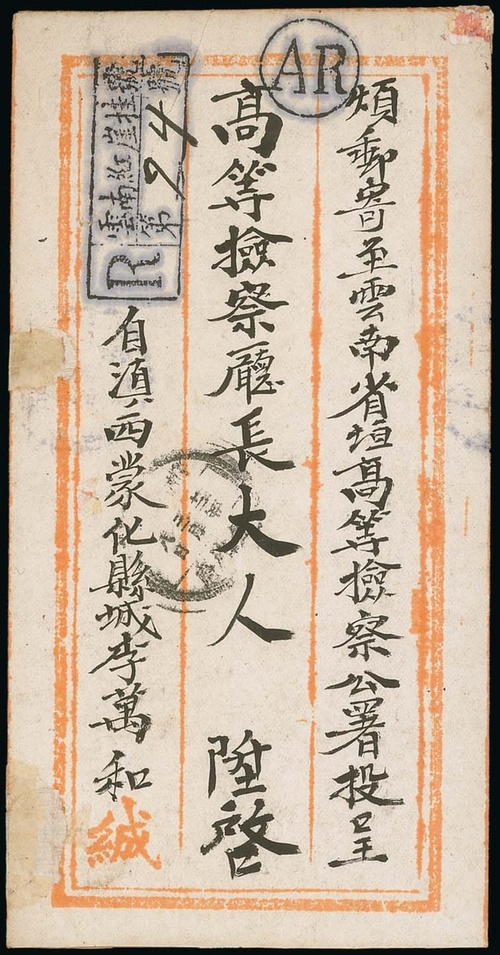 煩郵寄至雲南省垣高等撿察公署投呈
高等撿察廳長大人 陞啓
自滇西蒙化縣城李萬和緘
AR
雲南紅崖挂號郵
第 94
R